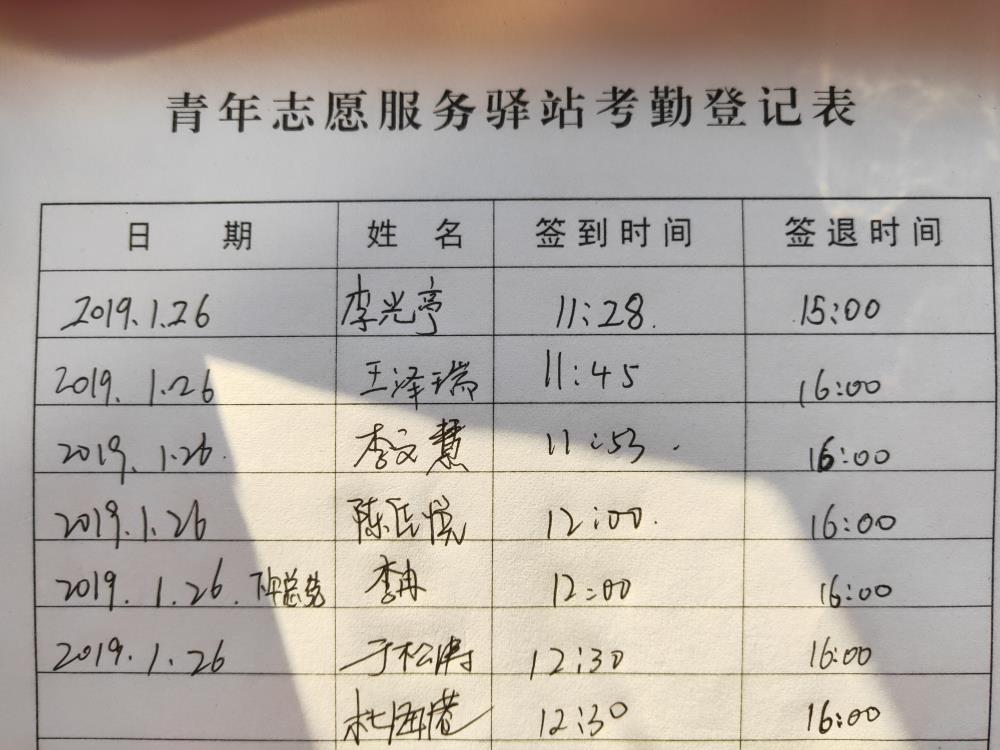 青年志愿服务驿站考勤登记表
日 期 姓 名 签到时间 签退时间
2019.1.26 李光亭 11:28. 15:00
2019. 1.26 王泽瑞 11:45 16:00
2019. 1.26. 李文慧 11:53 . 16:00
2019.1.26 陈 悦 12:00. 16:00
2019. 1.26. 李冉 12:00 16:00
2019.1.26 于松涛 12:30 16:00
杜 12:30 16:00